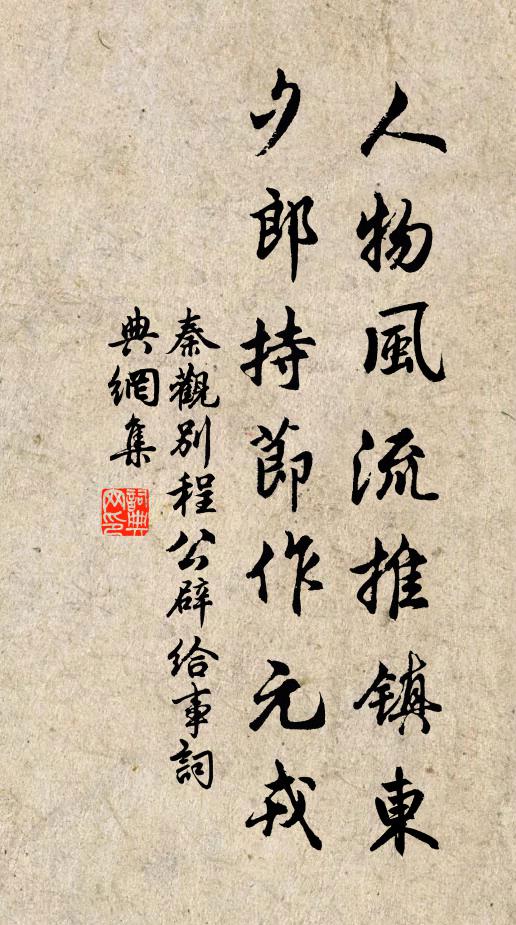 人物風流推鎮東
夕郎持節作元戎
秦觀別程公辟給事詞
典網集
詞典網印